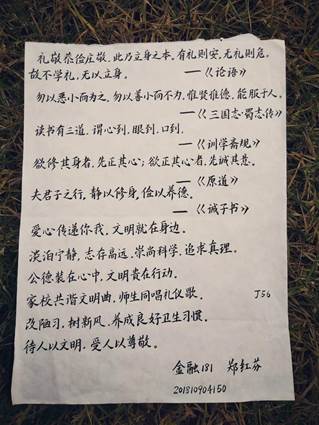 礼敬恭俭庄敬，此乃立身之本。有礼则安，无礼则危。
故不学礼，无以立身。 ——《论语》
勿以恶小而为之，勿以善小而不为，惟贤惟德，能服于人。
——《三国志·蜀志传》
读书有三道，谓心到，眼到，口到。
——《训学斋规》
欲修其身者，先正其心；欲正其心者，先诚其意。
——《原道》
夫君子之行，静以修身，俭以养德。
——《诫子书》
爱心传递你我，文明就在身边。
淡泊宁静，志存高远，崇尚科学，追求真理。
公德装在心中，文明贵在行动。
家校共谐文明曲，师生同唱礼仪歌。 J56
改陋习，树新风，养成良好卫生习惯。
待人以文明，受人以尊敬。
金融181 郑红芬
201810904150